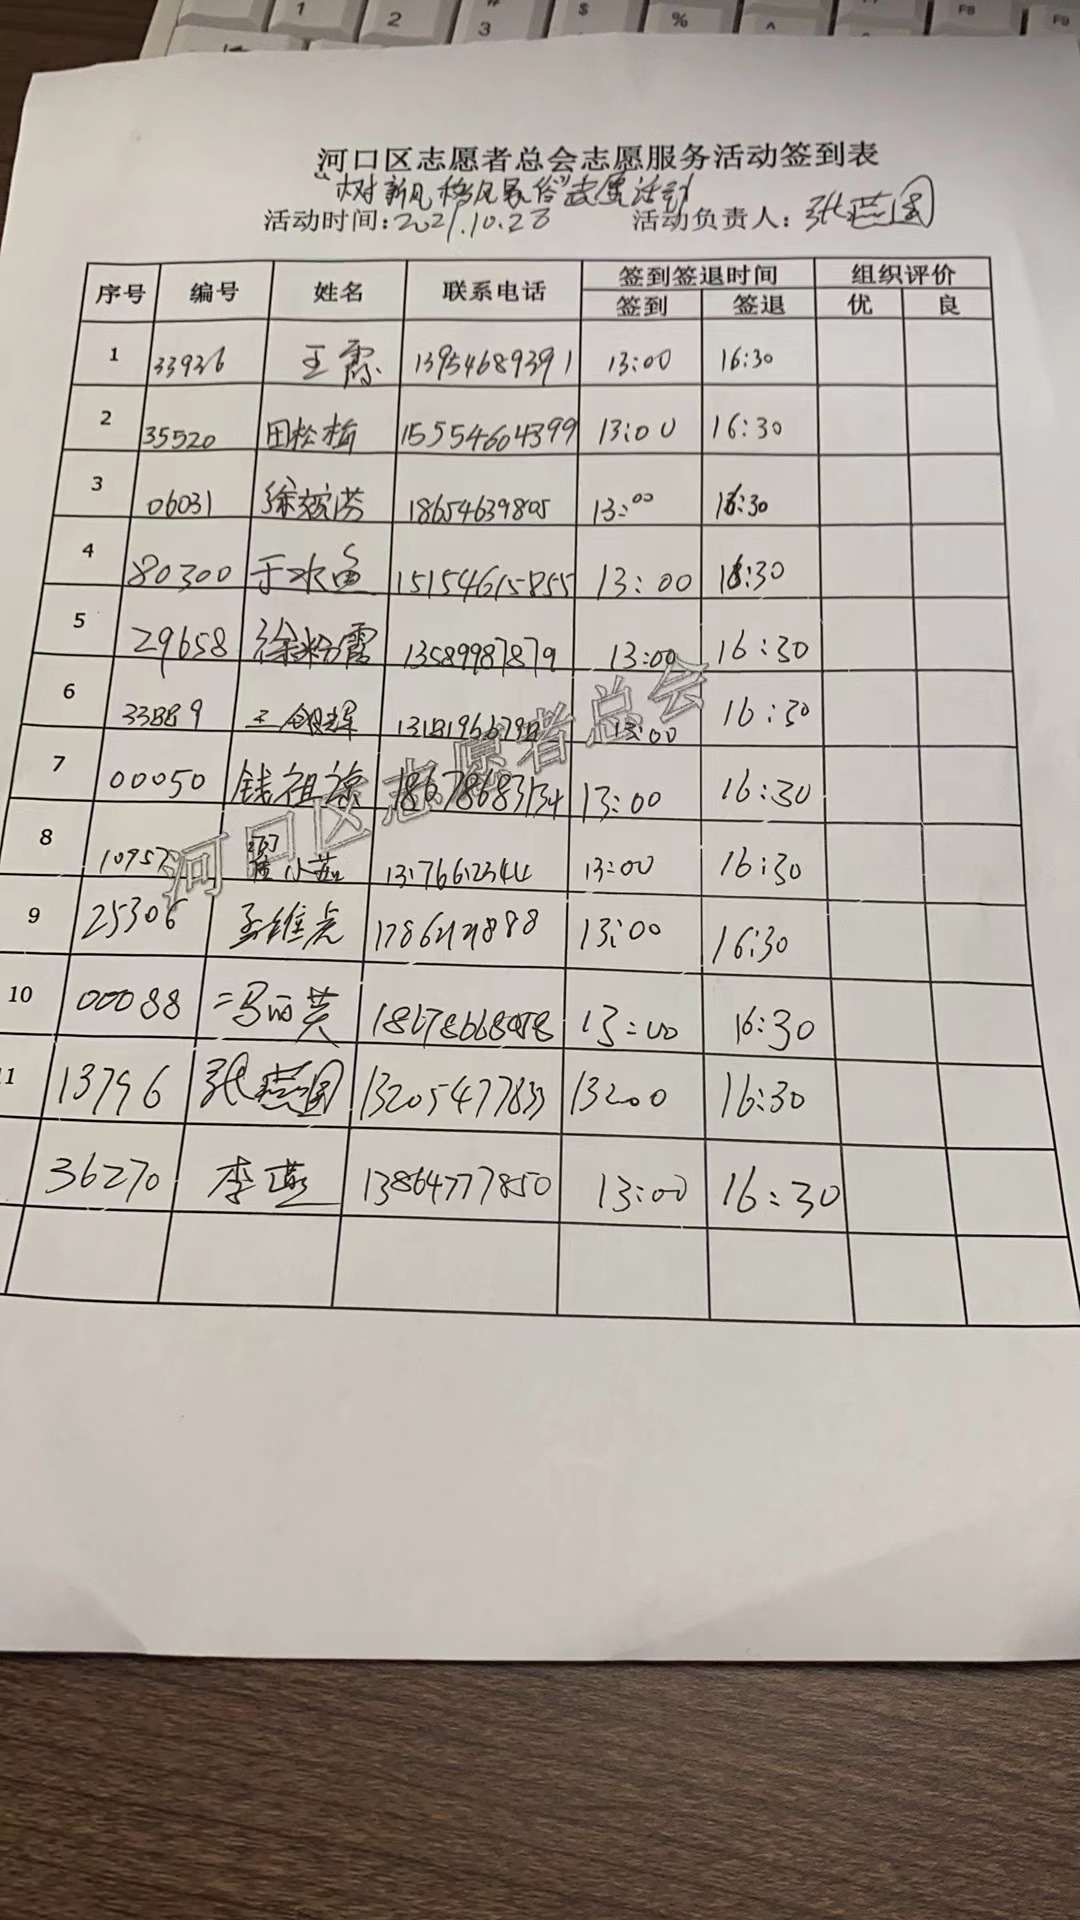 河口区志愿者总会志愿服务活动签到表
"树新风 移风易俗"志愿活动
活动时间:2021.10.23 活动负责人:张燕国
序号 编号 姓名 联系电话 签到签退时间 组织评价
签到 签退 优 良
1 33936 王霞 13954689391 13:00 16:30
2 35520 田松梅 15554604399 13:00 16:30
3 06031 徐 芳 18654639805 13:00 16:30
4 80300 于水鱼 15154615855 13:00 16:30
5 29658 徐粉霞 13589987879 13:00 16:30
6 33889 王 辉 13:00 16:30
7 00050 钱祖 18678683134 13:00 16:30
8 10957 翟小茹 13:00 16:30
9 25306 孟维虎 13:00 16:30
10 00088 冯丽英 13:00 16:30
11 13796 张燕国 13205477833 13:00 16:30
36270 李燕 13864777850 13:00 16:30
河口区志愿者总会